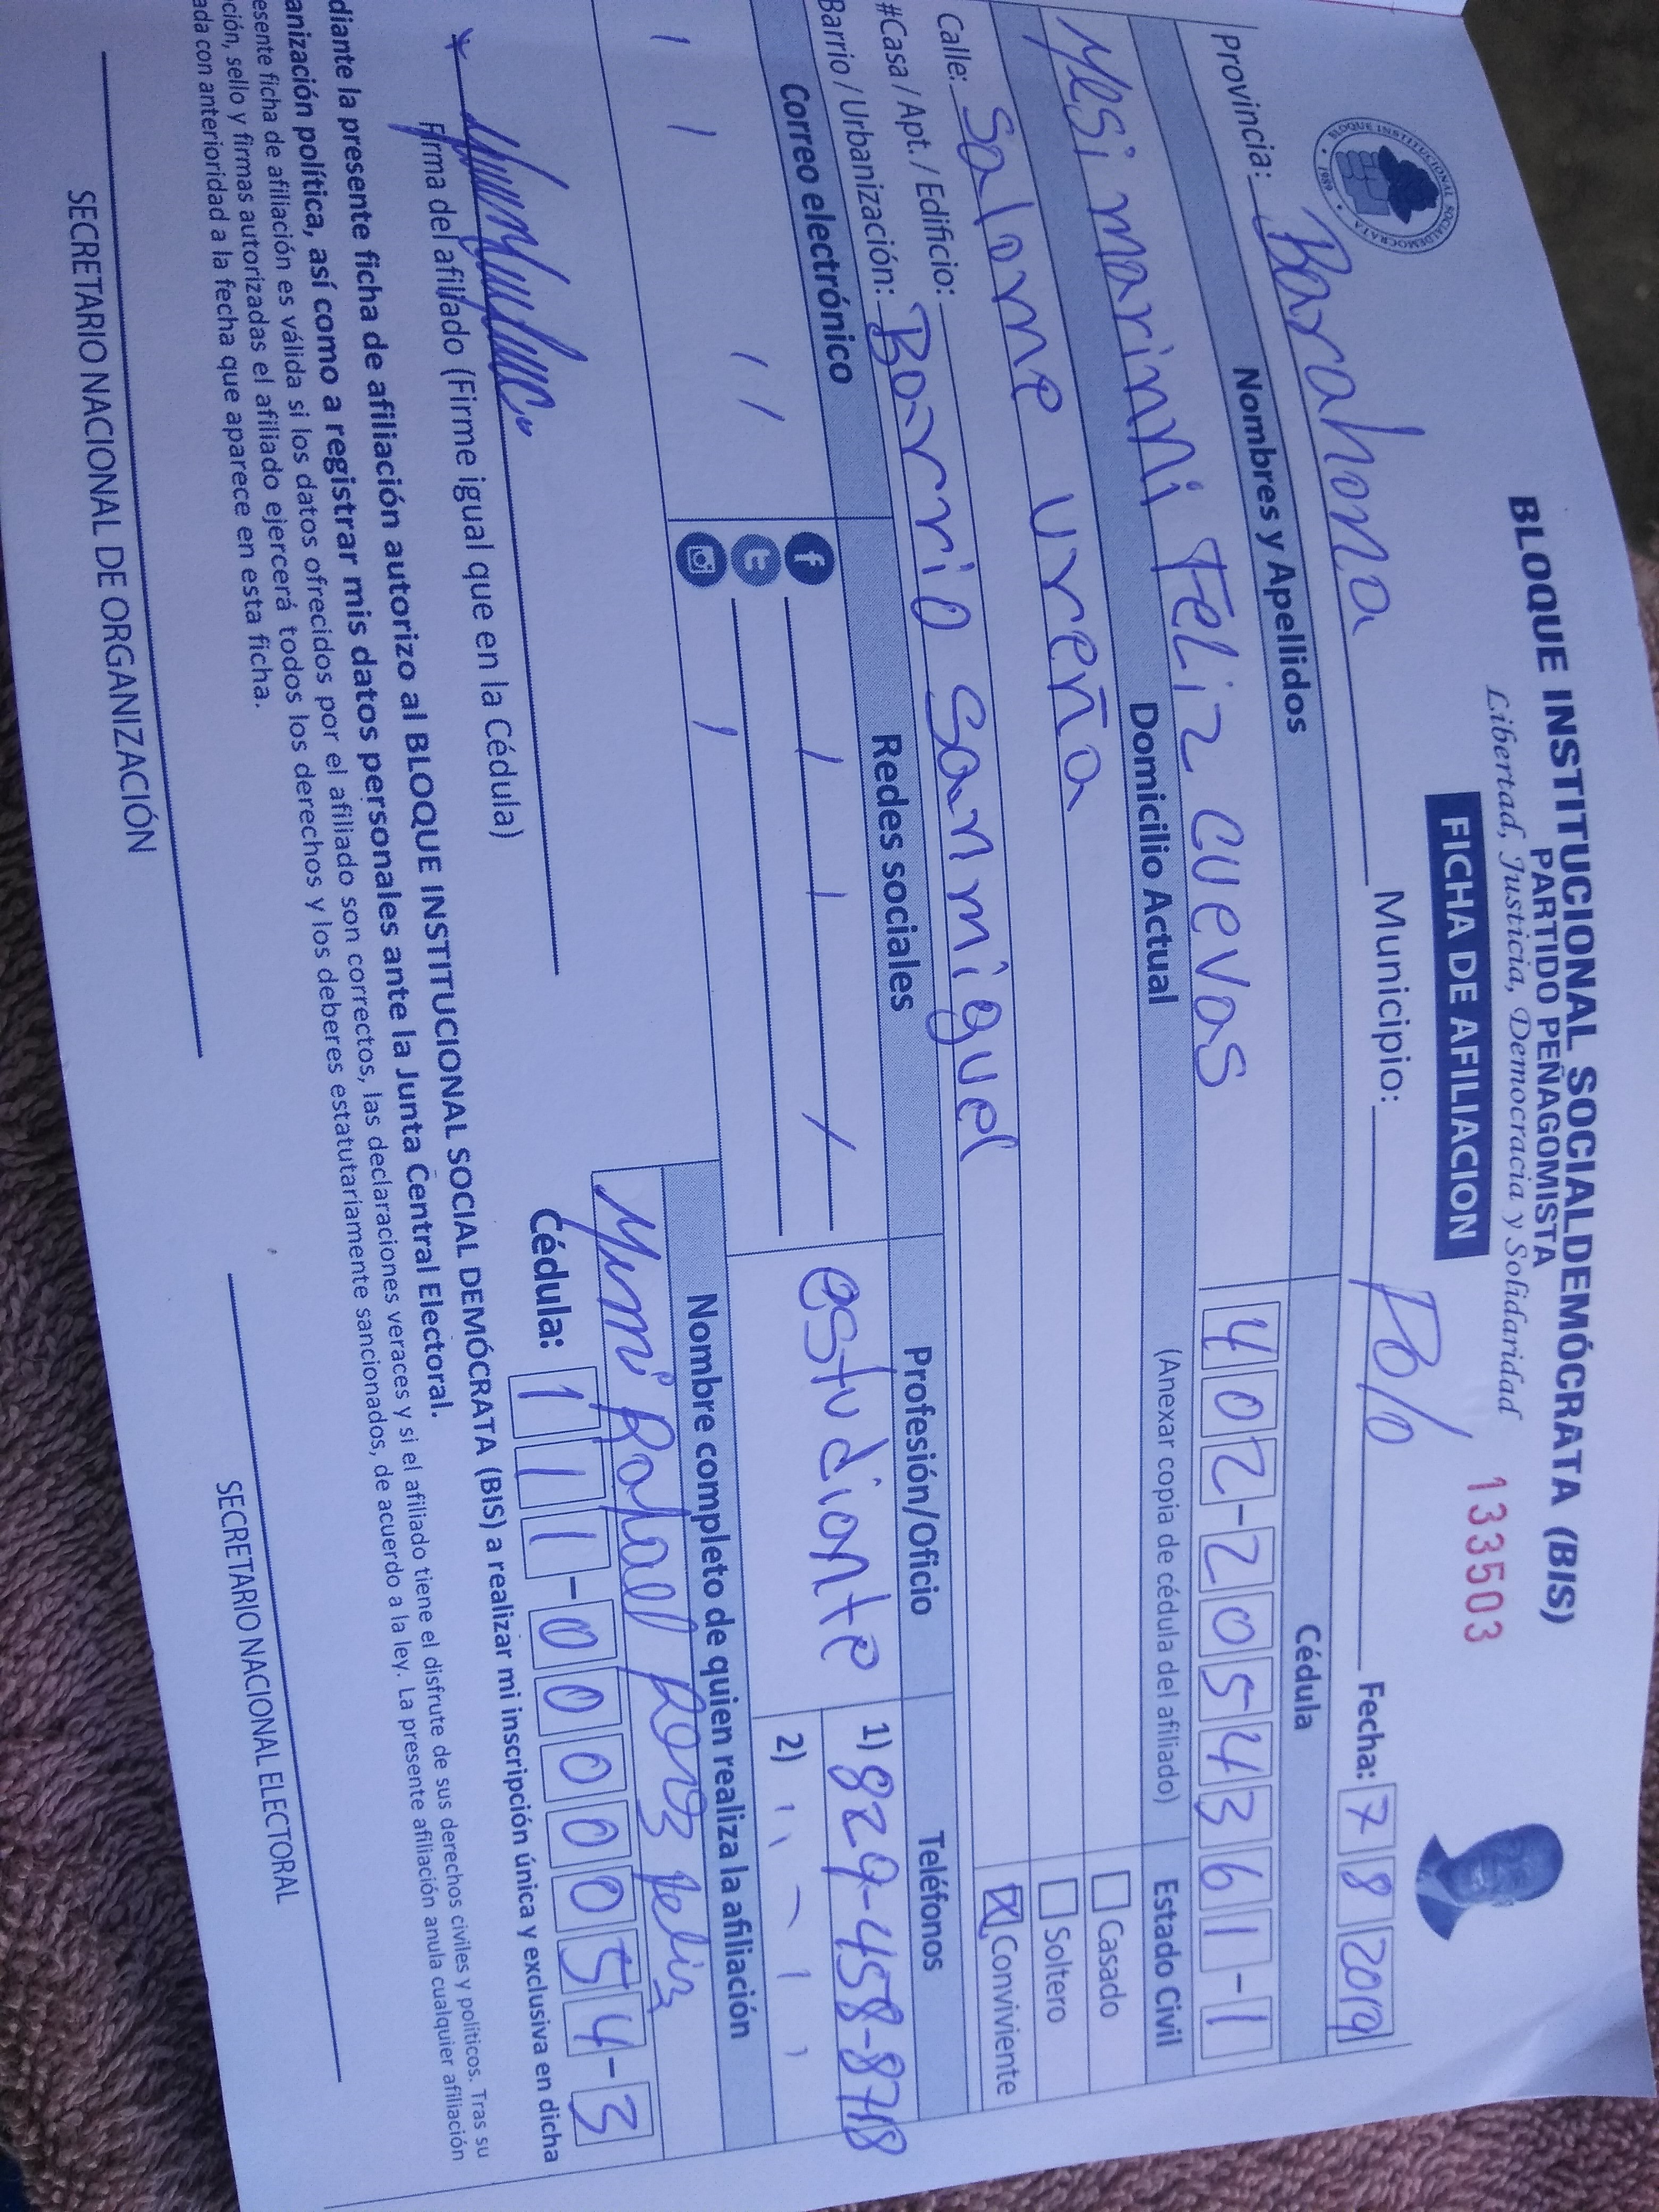 BLOQUE INSTITUCIONAL SOCIALDEMÓCRATA (BIS)
PARTIDO PEÑAGOMISTA
Libertad, Justicia, Democracia y Solidaridad
FICHA DE AFILIACION
133503
BLOQUE INSTITUCIONAL SOCIALDEMOCRATA
1989
Provincia: Barahona Municipio: Polo Fecha: 7 8 2019
Nombres y Apellidos Cédula
Yesi marinni Feliz cuevas 402-2054361-1
Domicilio Actual (Anexar copia de cédula del afiliado) Estado Civil
Calle: Salome ureña Casado
#Casa / Apt. / Edificio: Soltero
Barrio / Urbanización: Barrio San miguel X Conviviente
Correo electrónico Redes sociales Profesión/Oficio Teléfonos
estudiante 1) 829-458-8718
2)
Nombre completo de quien realiza la afiliación
Rafael feliz
Firma del afiliado (Firme igual que en la Cédula) Cédula: 111-0000054-3
diante la presente ficha de afiliación autorizo al BLOQUE INSTITUCIONAL SOCIAL DEMÓCRATA (BIS) a realizar mi inscripción única y exclusiva en dicha
anización política, así como a registrar mis datos personales ante la Junta Central Electoral.
esente ficha de afiliación es válida si los datos ofrecidos por el afiliado son correctos, las declaraciones veraces y si el afiliado tiene el disfrute de sus derechos civiles y políticos. Tras su
ción, sello y firmas autorizadas el afiliado ejercerá todos los derechos y los deberes estatutariamente sancionados, de acuerdo a la ley. La presente afiliación anula cualquier afiliación
ada con anterioridad a la fecha que aparece en esta ficha.
SECRETARIO NACIONAL DE ORGANIZACIÓN SECRETARIO NACIONAL ELECTORAL